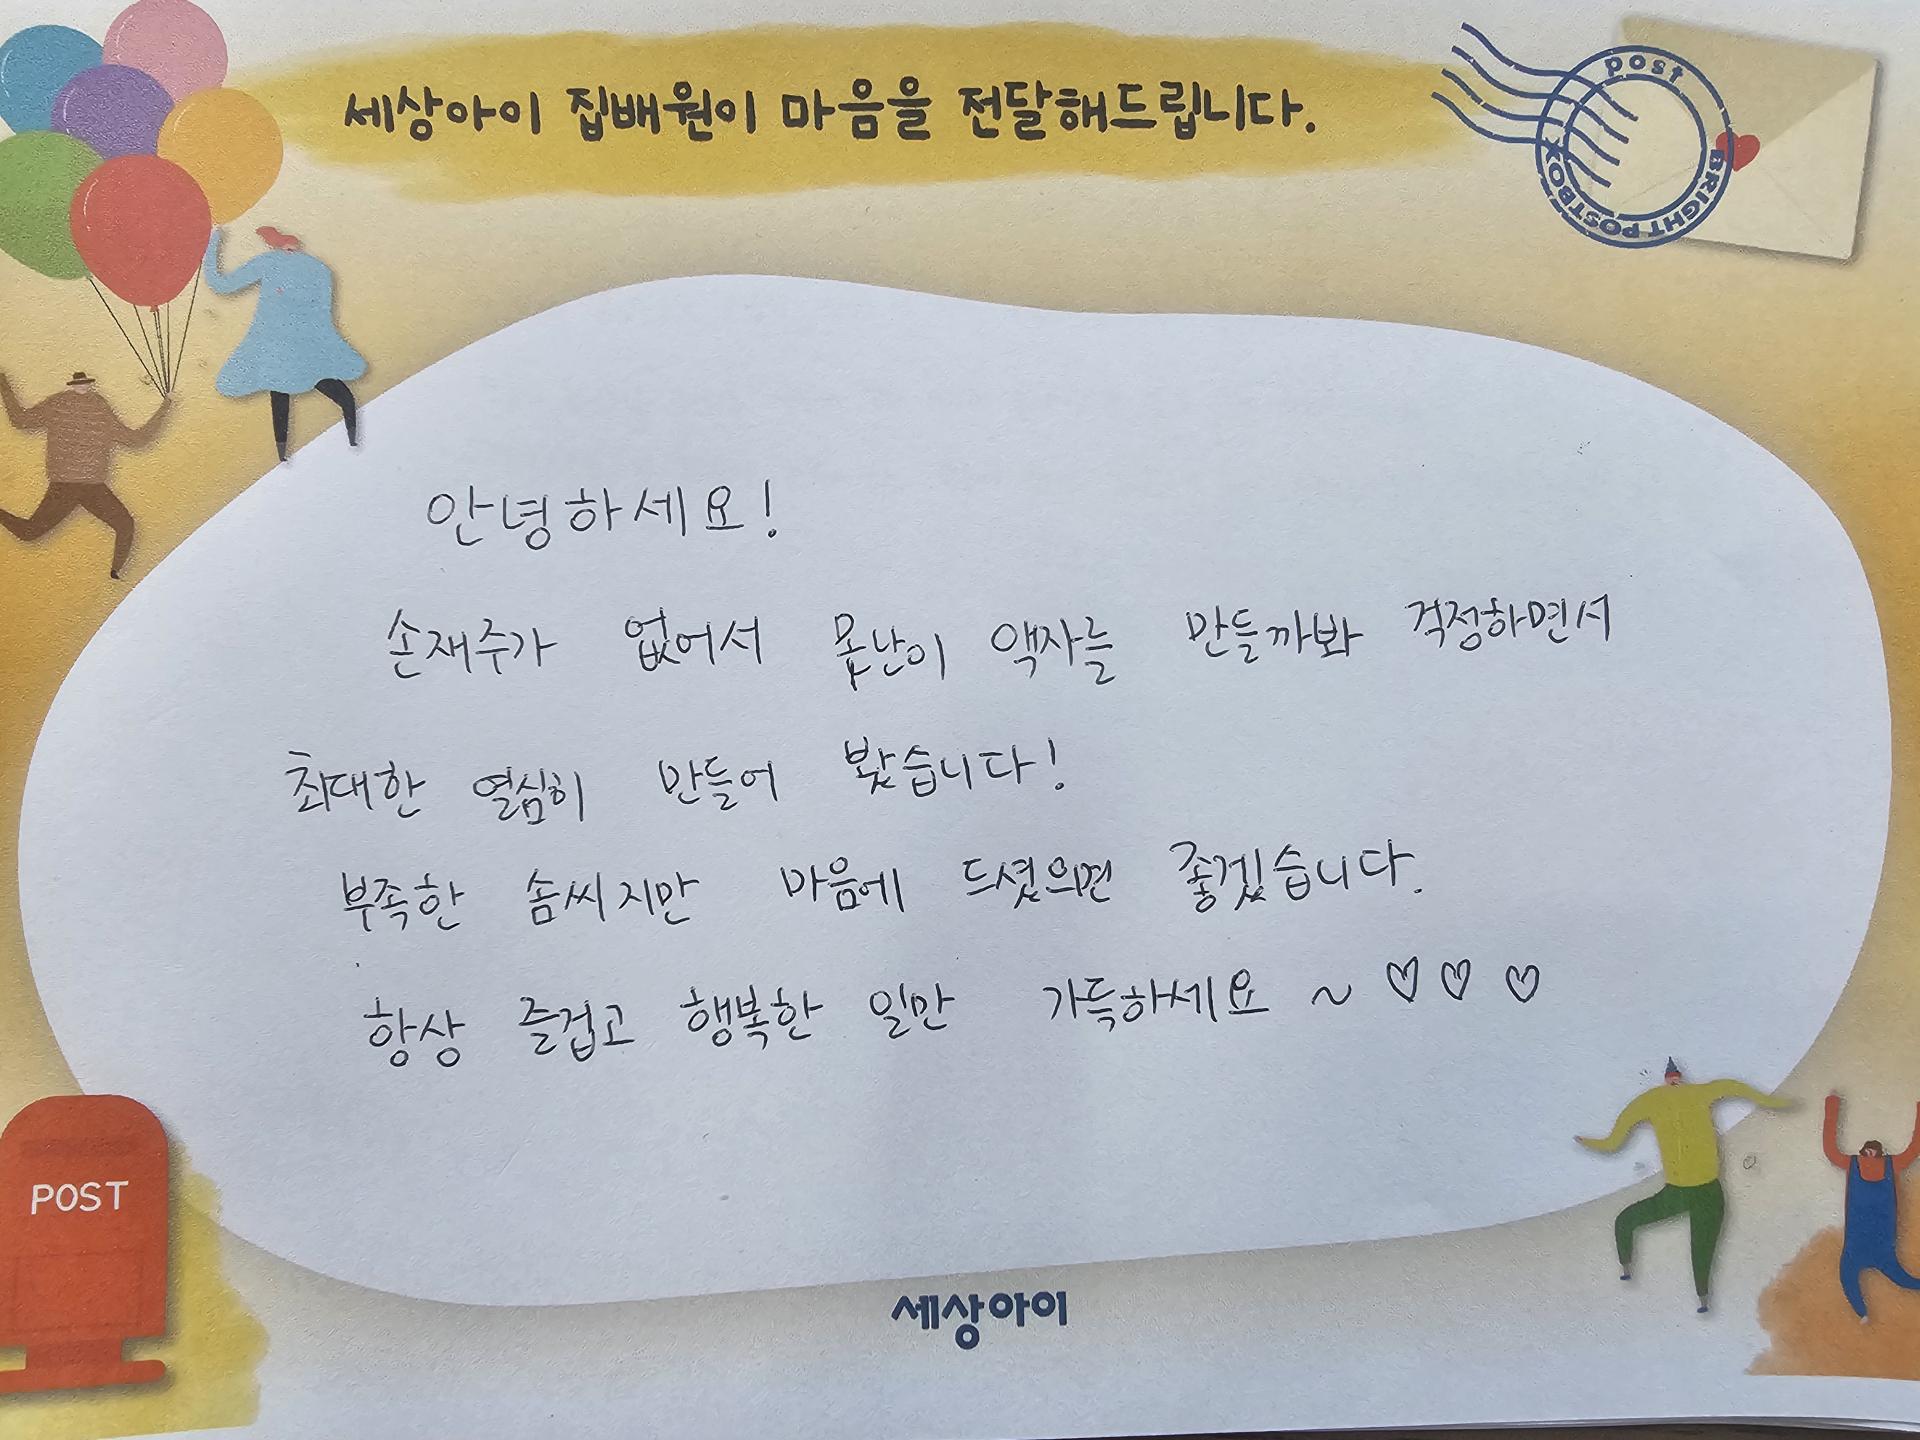 세상아이 집배원이 마음을 전달해드립니다.
post
BRIGHT POSTBOX
안녕하세요!
손재주가 없어서 못난이 액자를 만들까봐 걱정하면서
최대한 열심히 만들어 봤습니다!
부족한 솜씨지만 마음에 드셨으면 좋겠습니다.
항상 즐겁고 행복한 일만 가득하세요 ~ ♡ ♡ ♡
POST
세상아이